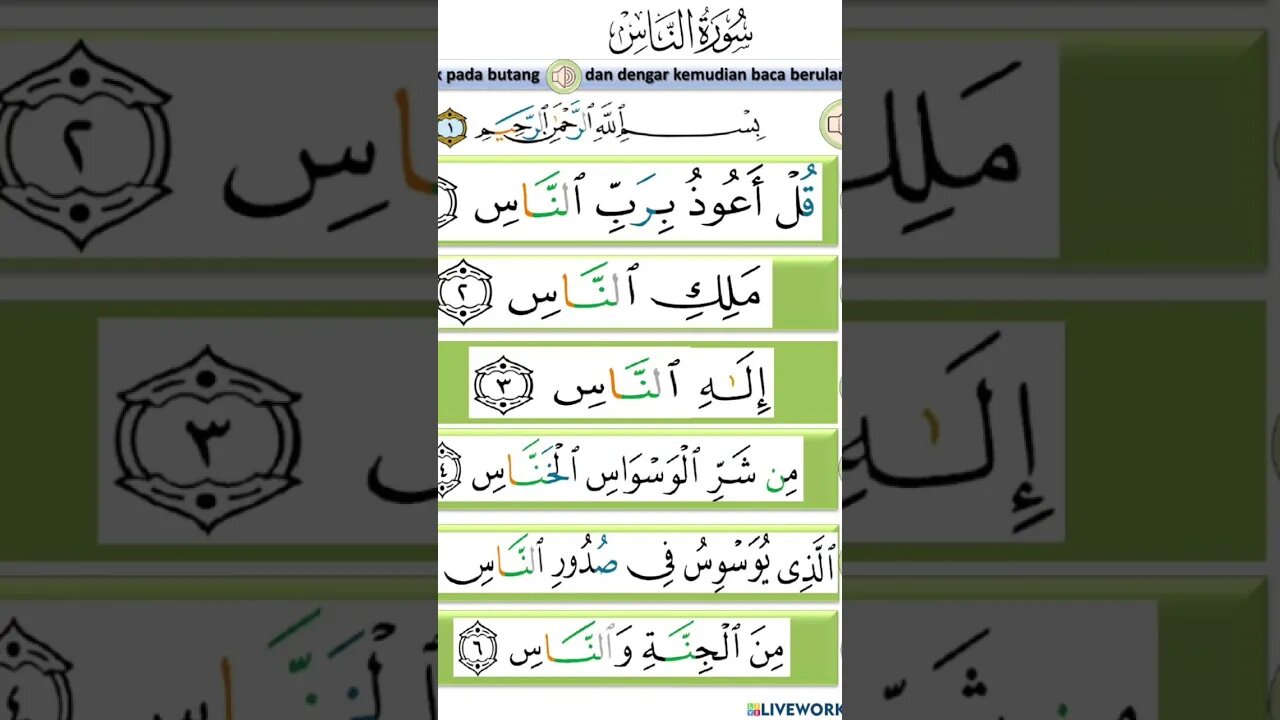 سُورَةُ النَّاسِ
pada butang dan dengar kemudian baca berulan
بِسْمِ ٱللَّهِ ٱلرَّحْمَٰنِ ٱلرَّحِيمِ ١
قُلْ أَعُوذُ بِرَبِّ ٱلنَّاسِ
مَلِكِ ٱلنَّاسِ ٢
إِلَٰهِ ٱلنَّاسِ ٣
مِن شَرِّ ٱلْوَسْوَاسِ ٱلْخَنَّاسِ ٤
ٱلَّذِى يُوَسْوِسُ فِى صُدُورِ ٱلنَّاسِ
مِنَ ٱلْجِنَّةِ وَٱلنَّاسِ ٦
LIVEWORK